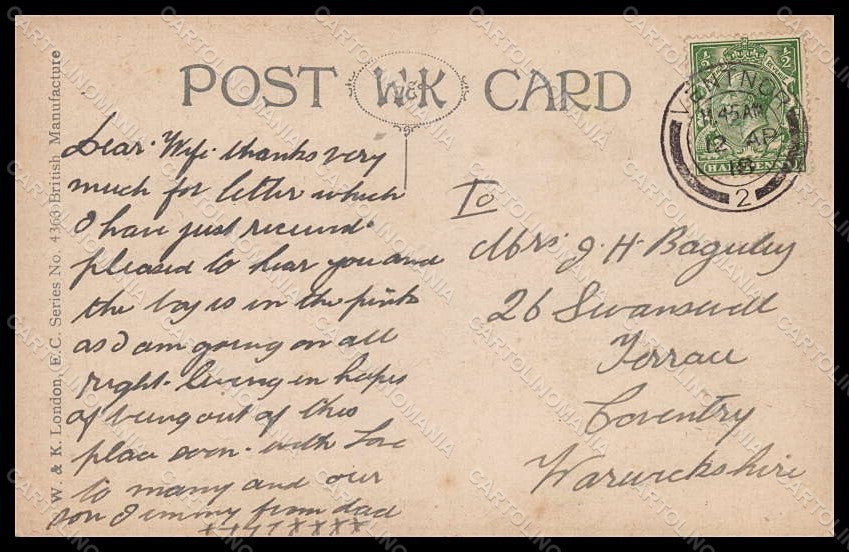 POST W&K CARD
Dear Wife thanks very
much for letter which
I have just received
pleased to hear you and
the boy is in the pink
as I am going on all
right. living in hopes
of being out of this
place soon. with Love
to many and our
son Jimmy from dad
xxxxxxxx
To
Mrs J. H. Baguley
26 Swanswell
Terrace
Coventry
Warwickshire
VENTNOR
11.45 AM
12 AP
18
2
HALFPENNY
W. & K. London, E.C. Series No. 4363 British Manufacture
CARTOLINOMANIA